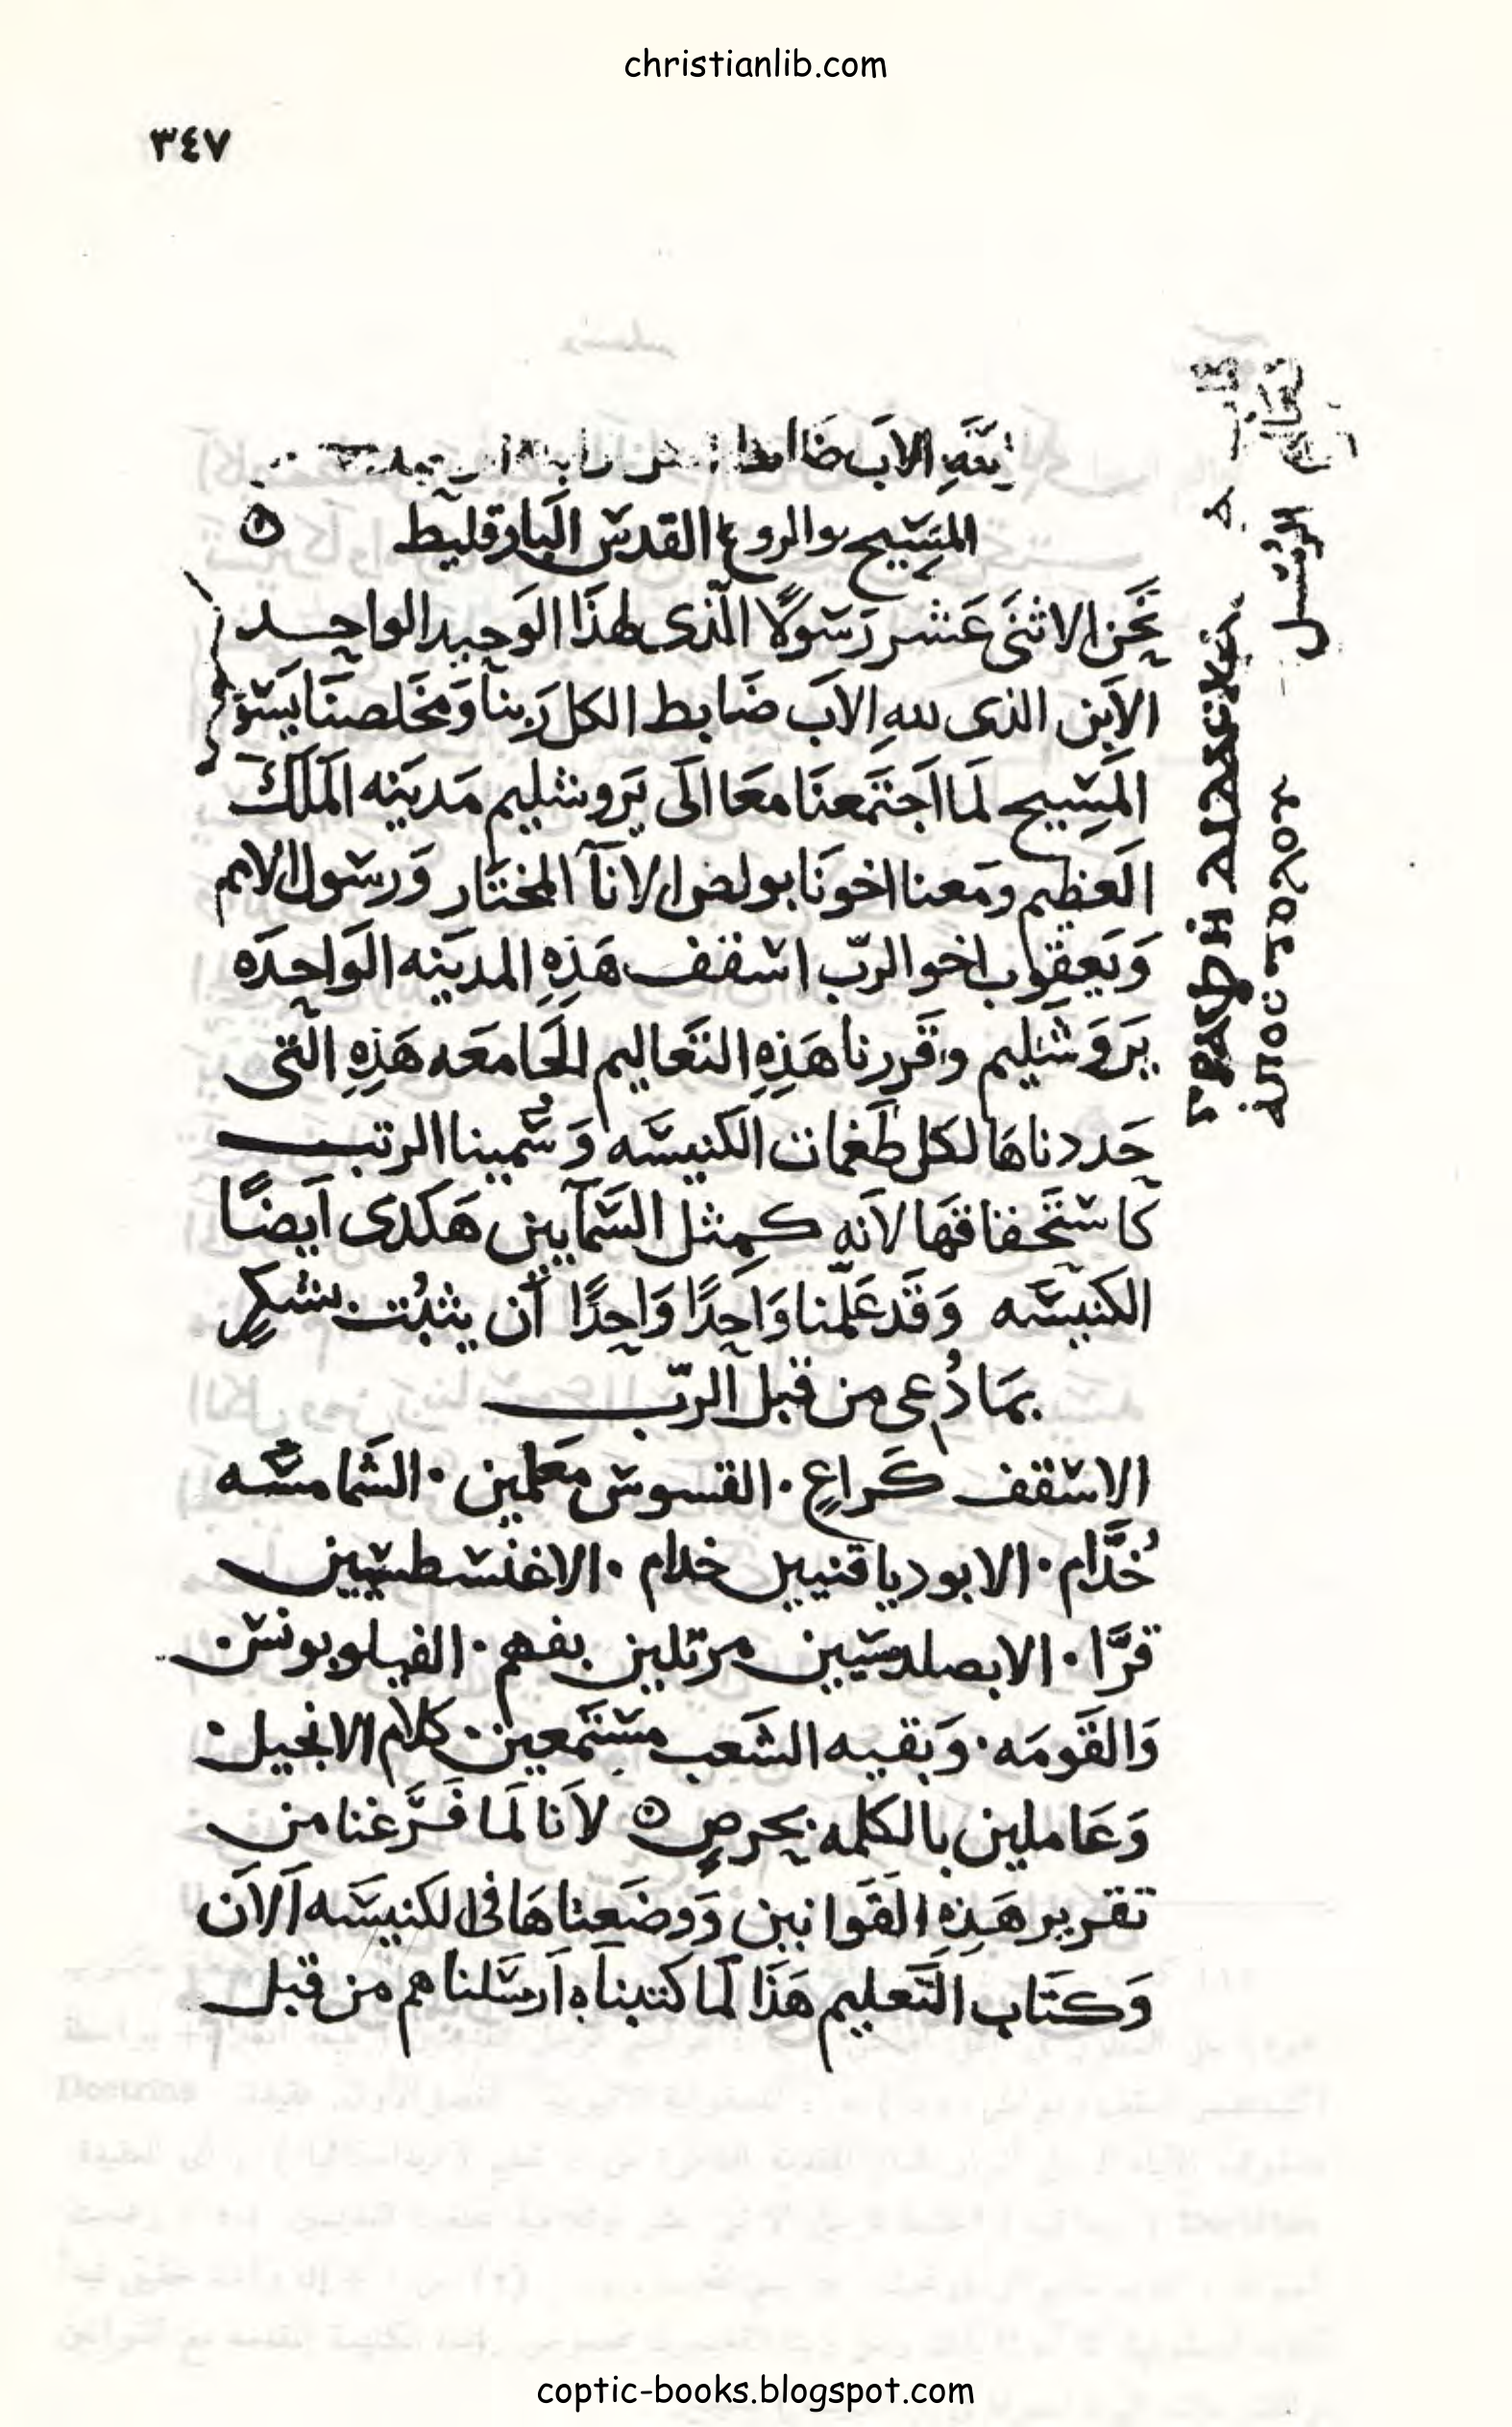 christianlib.com
٣٤٧
الاب ضا
المسيح والروح القدس البارقليط
نحن الاثنى عشر رسولًا الذى لهذا الوحيد الواحد
الابن الذى لله الاب ضابط الكل ربنا ومخلصنا يسوع
المسيح لما اجتمعنا معا الى يروشليم مدينه الملك
العظيم ومعنا اخونا بولص الانآ المختار ورسول الامم
ويعقوب اخو الربّ اسقف هذه المدينه الواحده
يروشليم وقررنا هذه التعاليم الجامعه هذه التى
حددناها لكل طغمات الكنيسه وسمينا الرتب
كاستحقاقها لانه كمثل السمآيين هكدى ايضًا
الكنيسه وقد علّمنا واحدًا واحدًا ان يثبُت بشكرٍ
بما دُعى من قبل الربّ
الاسقف كراعٍ · القسوس معلمين · الشمامسه
خُدَّام · الابودياقنيين خدام · الاغنسطسيين
قرَّا · الابصلدسيين مرتلين بفهم · الفيلوبونس
والقومه · وبقيه الشعب مستمعين كلام الانجيل ·
وعاملين بالكلمه بحرصٍ لانا لما فرَّغنا من
تقرير هذه القوانين ووضعناها فى الكنيسه الان
وكتاب التعليم هذا لما كتبناه ارسلناهم من قبل
كتاب
تعاليم
الرسل
coptic-books.blogspot.com